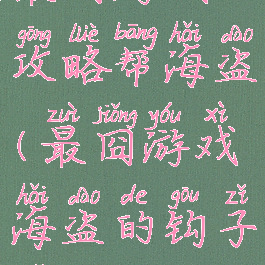 gōng lüè bāng hǎi dào
攻略帮海盗
zuì jiǒng yóu xì
(最囧游戏
hǎi dào de gōu zǐ
海盗的钩子